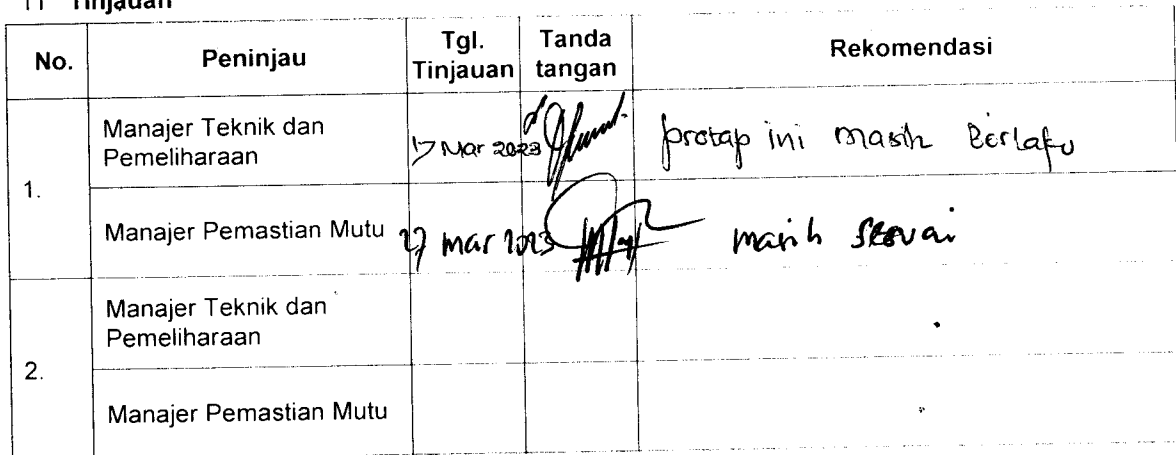 11 Tinjauan
No. Peninjau Tgl. Tinjauan Tanda tangan Rekomendasi
1. Manajer Teknik dan Pemeliharaan 17 Mar 2023 protap ini masih berlaku
Manajer Pemastian Mutu 27 mar 2023 masih sesuai
2. Manajer Teknik dan Pemeliharaan
Manajer Pemastian Mutu